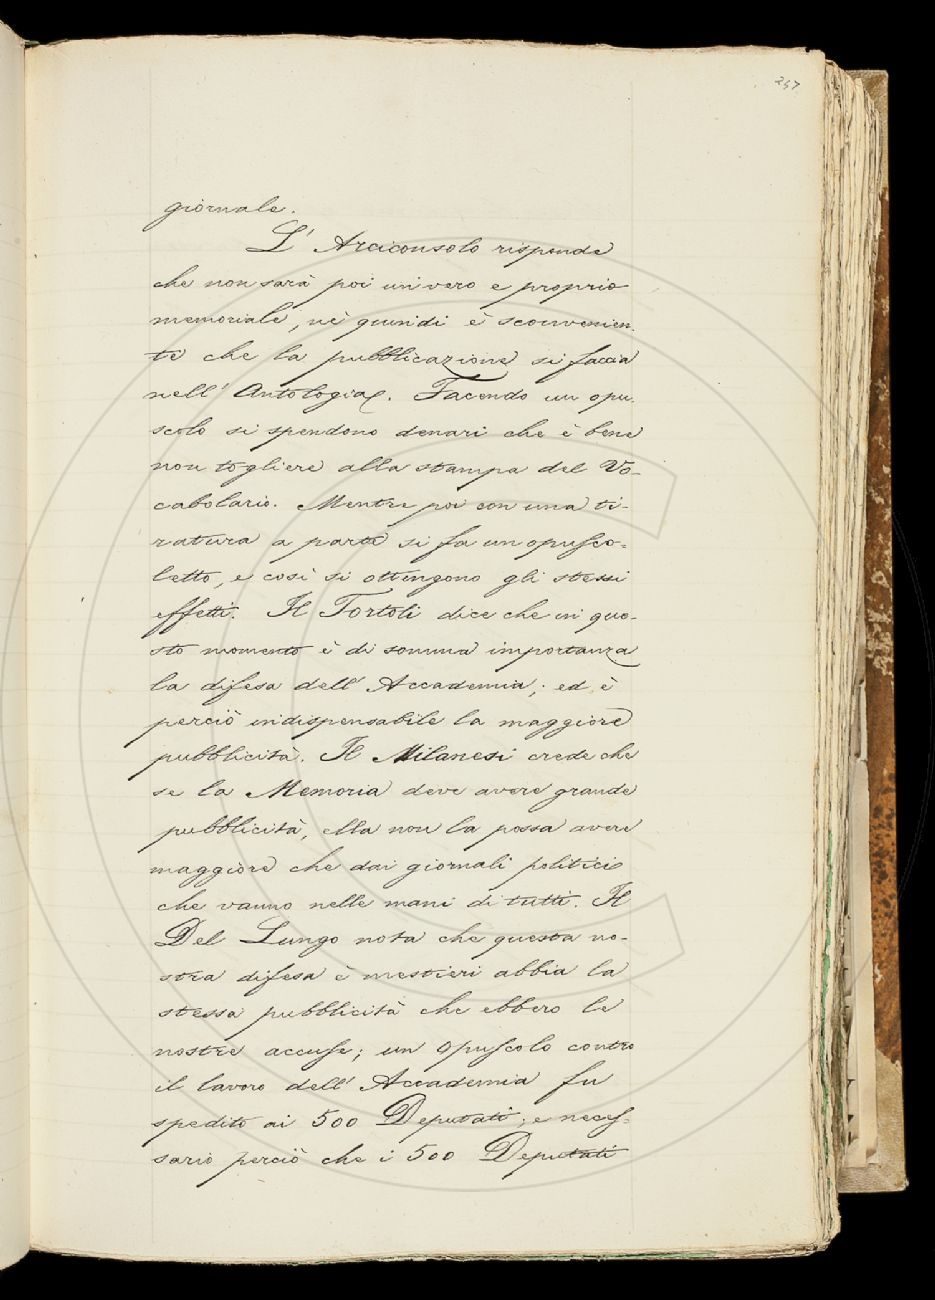 257
giornale.
L' Arciconsolo risponde
che non sarà poi un vero e proprio
memoriale, nè quindi è sconvenien-
te che la pubblicazione si faccia
nell' Antologia. Facendo un opu-
scolo si spendono denari che è bene
non togliere alla stampa del Vo-
cabolario. Mentre poi con una ti-
ratura a parte si fa un opusco-
letto, e così si ottengono gli stessi
effetti. Il Tortoli dice che in que-
sto momento è di somma importanza
la difesa dell' Accademia; ed è
perciò indispensabile la maggiore
pubblicità. Il Milanesi crede che
se la Memoria deve avere grande
pubblicità, ella non la possa avere
maggiore che dai giornali politici
che vanno nelle mani di tutti. Il
Del Lungo nota che questa no-
stra difesa è mestieri abbia la
stessa pubblicità che ebbero le
nostre accuse; un opuscolo contro
il lavoro dell' Accademia fu
spedito ai 500 Deputati; e neces-
sario perciò che i 500 Deputati